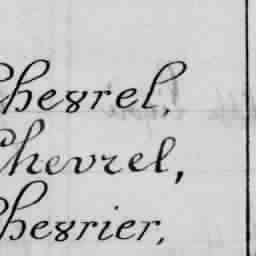 Chevrel,
Chevrel,
Chevrier,